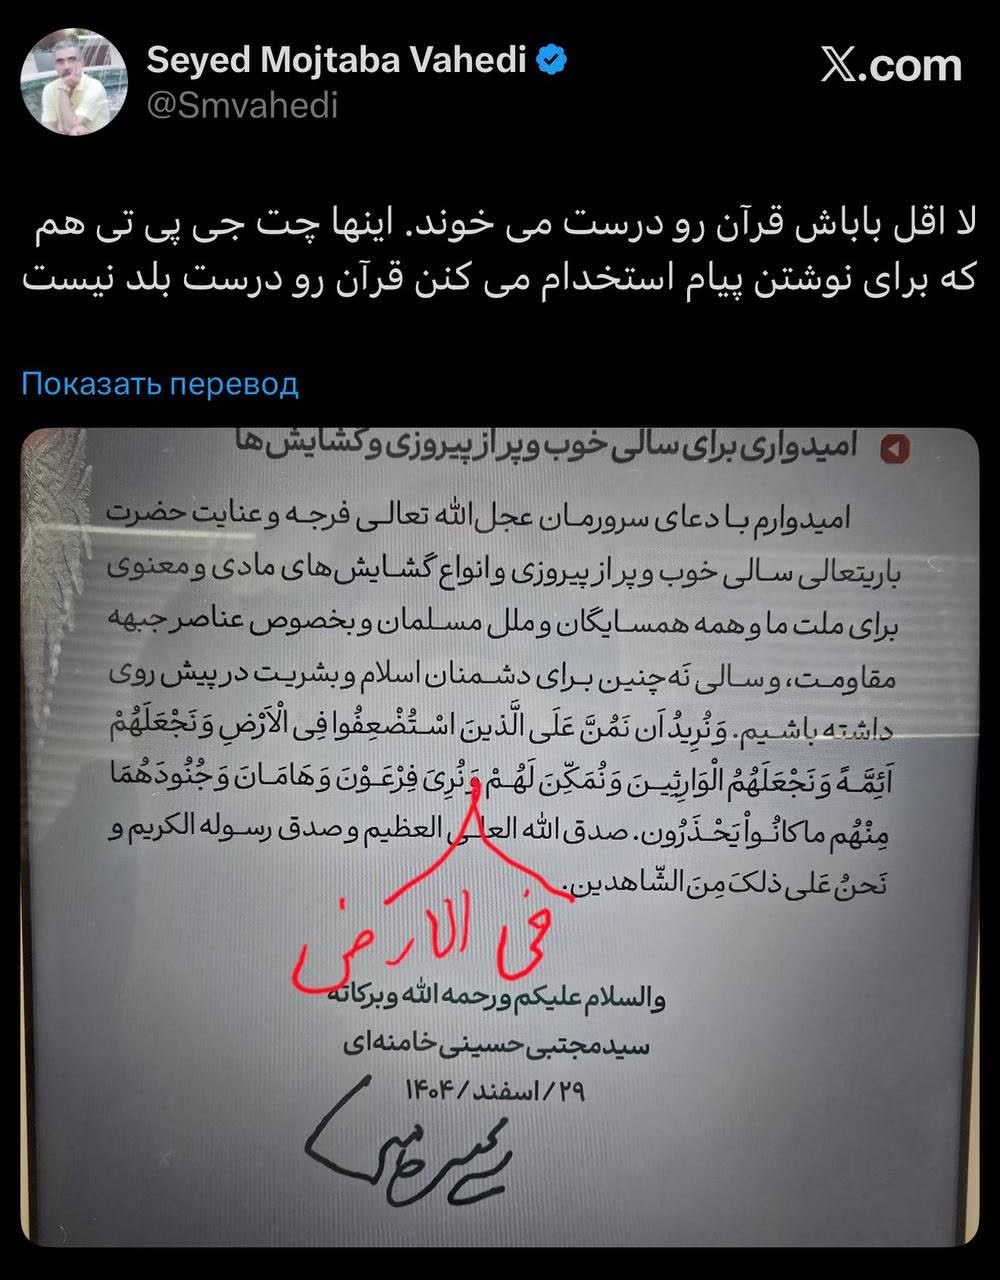 Seyed Mojtaba Vahedi
@Smvahedi
X.com
لا اقل باباش قرآن رو درست می خوند. اینها چت جی پی تی هم
که برای نوشتن پیام استخدام می کنن قرآن رو درست بلد نیست
Показать перевод
امیدواری برای سالی خوب و پر از پیروزی و گشایش‌ها
امیدوارم با دعای سرورمان عجل‌الله تعالی فرجه و عنایت حضرت
باریتعالی سالی خوب و پر از پیروزی و انواع گشایش‌های مادی و معنوی
برای ملت ما و همه همسایگان و ملل مسلمان و بخصوص عناصر جبهه
مقاومت، و سالی نَه چنین برای دشمنان اسلام و بشریت در پیش روی
داشته باشیم. وَنُرِیدُ اَن نَمُنَّ عَلَی الَّذینَ اسْتُضْعِفُوا فِی الْاَرْضِ وَنَجْعَلَهُمْ
اَئِمَّةً وَنَجْعَلَهُمُ الْوَارِثِینَ وَنُمَکِّنَ لَهُمْ وَنُرِیَ فِرْعَوْنَ وَهَامَانَ وَجُنُودَهُمَا
مِنْهُم ماکانُواْ یَحْذَرُون. صدق الله العلی العظیم و صدق رسوله الکریم و
نَحنُ عَلی ذلکَ مِنَ الشّاهدین.
فی الارض
والسلام علیکم ورحمه الله وبرکاته
سیدمجتبی حسینی خامنه‌ای
۲۹/اسفند/۱۴۰۴